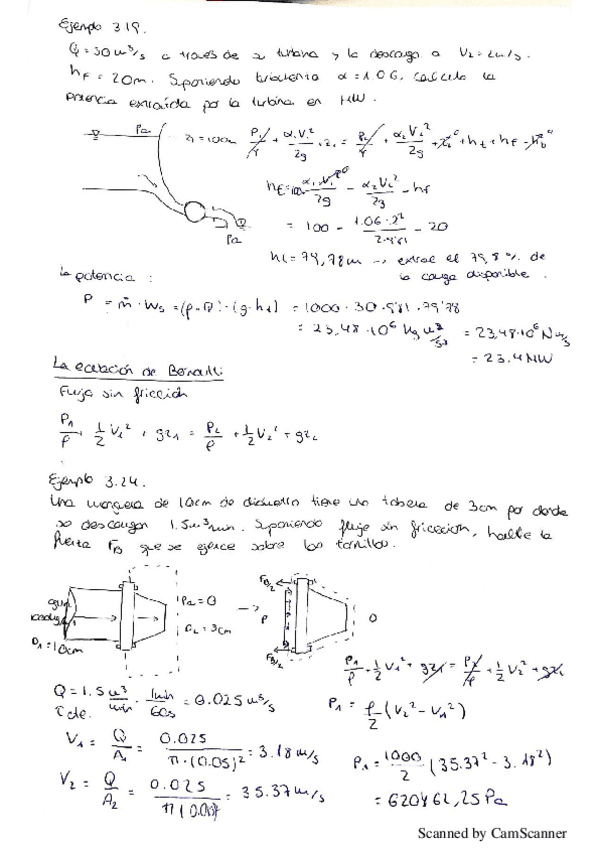 Ejemplo 3.19.
Q = 30 m³/s a través de su turbina y la descarga a V₂ = 2m/s.
hf = 20m. Suponiendo turbulento α = 1.06, calcula la
potencia extraída por la turbina en MW.
Pa
z₁ = 100m P₁/γ + α₁V₁²/2g + z₁ = P₂/γ + α₂V₂²/2g + z₂⁰ + ht + hf - hb⁰
ht = 100 α₁V₁²⁰/2g - α₂V₂²/2g - hf
= 100 - 1.06·2²/2·9'81 - 20
Pa
ht = 79,78m → extrae el 79,8% de
la carga disponible.
La potencia :
P = ṁ · ws = (ρ·Q) · (g·ht) = 1000 · 30 · 9'81 · 79'78
= 23,48·10⁶ kg m²/s³ = 23,48·10⁶ Nm/s
= 23.4 MW
La ecuación de Bernoulli
Flujo sin fricción
P₁/ρ + 1/2 V₁² + gz₁ = P₂/ρ + 1/2 V₂² + gz₂
Ejemplo 3.24.
Una manguera de 10cm de diámetro tiene una tobera de 3cm por donde
se descargan 1.5 m³/min. Suponiendo flujo sin fricción, halle la
fuerza FB que se ejerce sobre los tornillos.
agua
Pa = 0
D₂ = 3cm
D₁ = 10cm
→
FB/2
P
0
FB/2
P₁/ρ + 1/2 V₁² + gz₁ = P₂/ρ + 1/2 V₂² + gz₂
Q = 1.5 m³/min · 1min/60s = 0.025 m³/s
P₁ = ρ/2 (V₂² - V₁²)
V₁ = Q/A₁ = 0.025/π·(0.05)² = 3.18 m/s
P₁ = 1000/2 (35.37² - 3.18²)
V₂ = Q/A₂ = 0.025 = 35.37 m/s
= 620461,25 Pa
Scanned by CamScanner